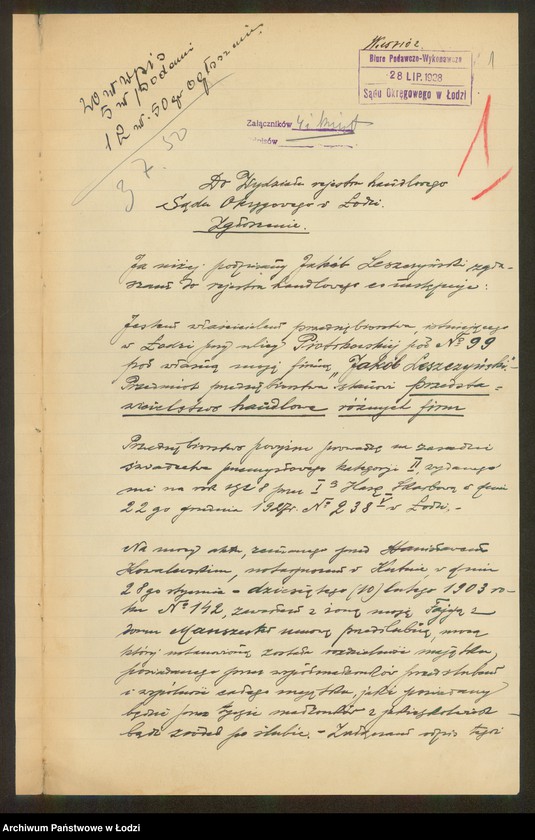 20 w wpis
5 w podani
12 w. 50 gr ogłoszenie
37.50
Biuro Podawczo-Wykonawcze
28 LIP. 1928
Sądu Okręgowego w Łodzi
1
Załączników
1
Do Wydziału rejestru handlowego
Sądu Okręgowego w Łodzi.
Zgłoszenie.
Ja niżej podpisany Jakób Leszczyński zgła-
szam do rejestru handlowego co następuje:
Jestem właścicielem przedsiębiorstwa, istniejącego
w Łodzi przy ulicy Piotrkowskiej pod № 99
pod własną moją firmą "Jakób Leszczyński".-
Przedmiot przedsiębiorstwa stanowi przedsta-
wicielstwo handlowe różnych firm
Przedsiębiorstwo powyższe prowadzę na zasadzie
świadectwa przemysłowego kategorji II, wydanego
mi na rok 1928 przez I Kasę Skarbową w dniu
22 go grudnia 1927 r. № 238 w Łodzi.-
Na mocy aktu, zeznanego przed Stanisławem
Kowalewskim, notarjuszem w Kutnie, w dniu
28 go stycznia - dziesiątego (10) lutego 1903 ro-
ku № 142, zawarłem z żoną moją z
domu umowę przedślubną, mocą
której ustanowioną została rozdzielność majątku,
posiadanego przez współmałżonków przed ślubem
i wspólność całego majątku, jaki posiadany
będzie przez życie małżonków z jakiegokolwiek
bądź źródła po ślubie. - Załączam odpis tegoż
Archiwum Państwowe w Łodzi